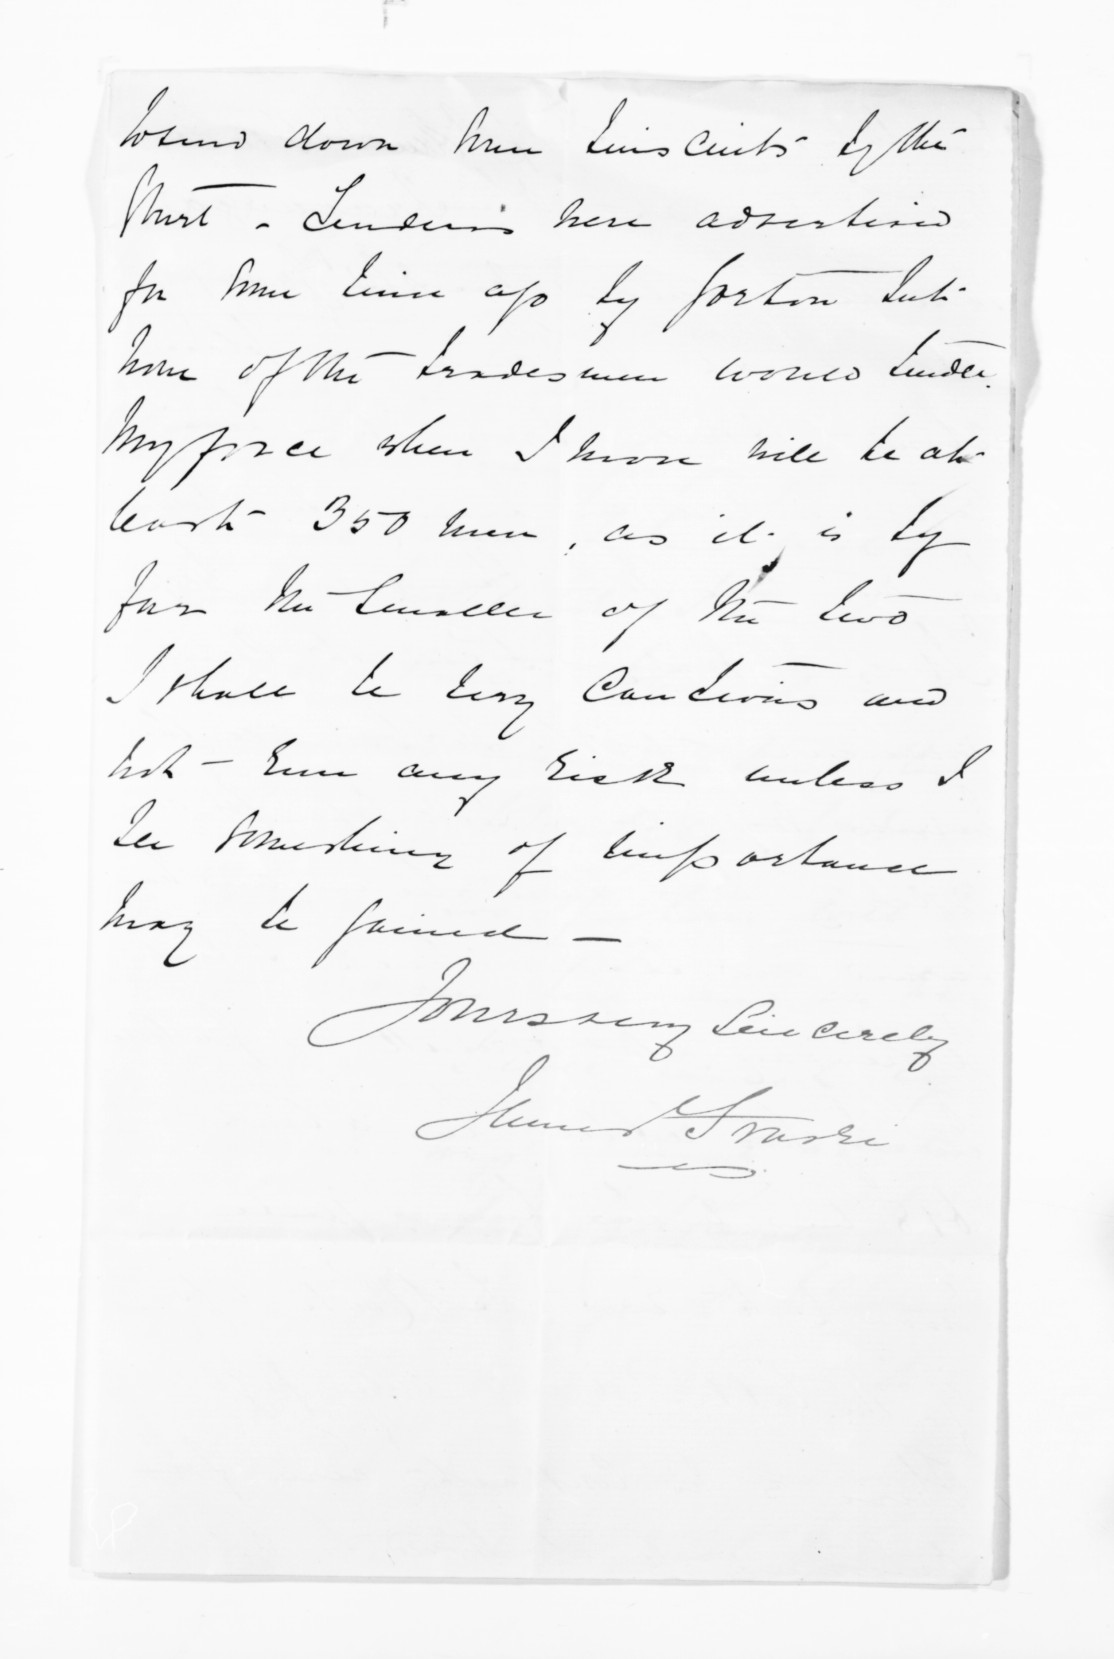 to send down some biscuits by the
Sturt - Tenders were advertised
for some time ago by Gorton but
none of the tradesmen would tender.
My force when I move will be at
least 350 men, as it is by
far the smaller of the two
I shall be very cautious and
not - run any risk unless I
see something of importance
may be gained -
Yours very sincerely
James Fraser